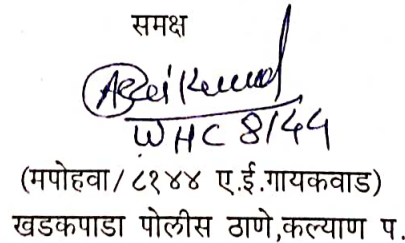 समक्ष
WHC 8144
(मपोहवा/८१४४ ए.ई.गायकवाड)
खडकपाडा पोलीस ठाणे,कल्याण प.